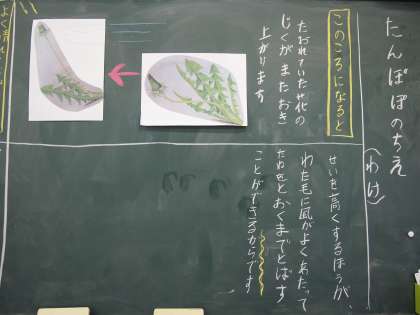 たんぽぽのちえ
このころになると
たおれていた花の
じくがまたおき
上がります
(わけ)
せいを高くするほうが、
わた毛に風がよくあたって
たねをとおくまでとばす
ことができるからです